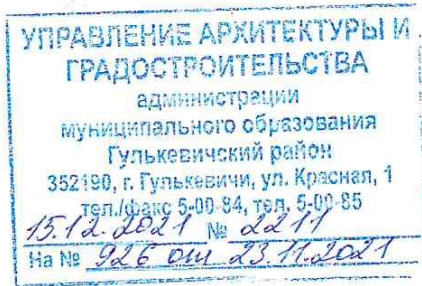 УПРАВЛЕНИЕ АРХИТЕКТУРЫ И
ГРАДОСТРОИТЕЛЬСТВА
администрации
муниципального образования
Гулькевичский район
352190, г. Гулькевичи, ул. Красная, 1
тел./факс 5-00-84, тел. 5-00-85
15.12.2021 № 2211
На № 926 от 23.11.2021